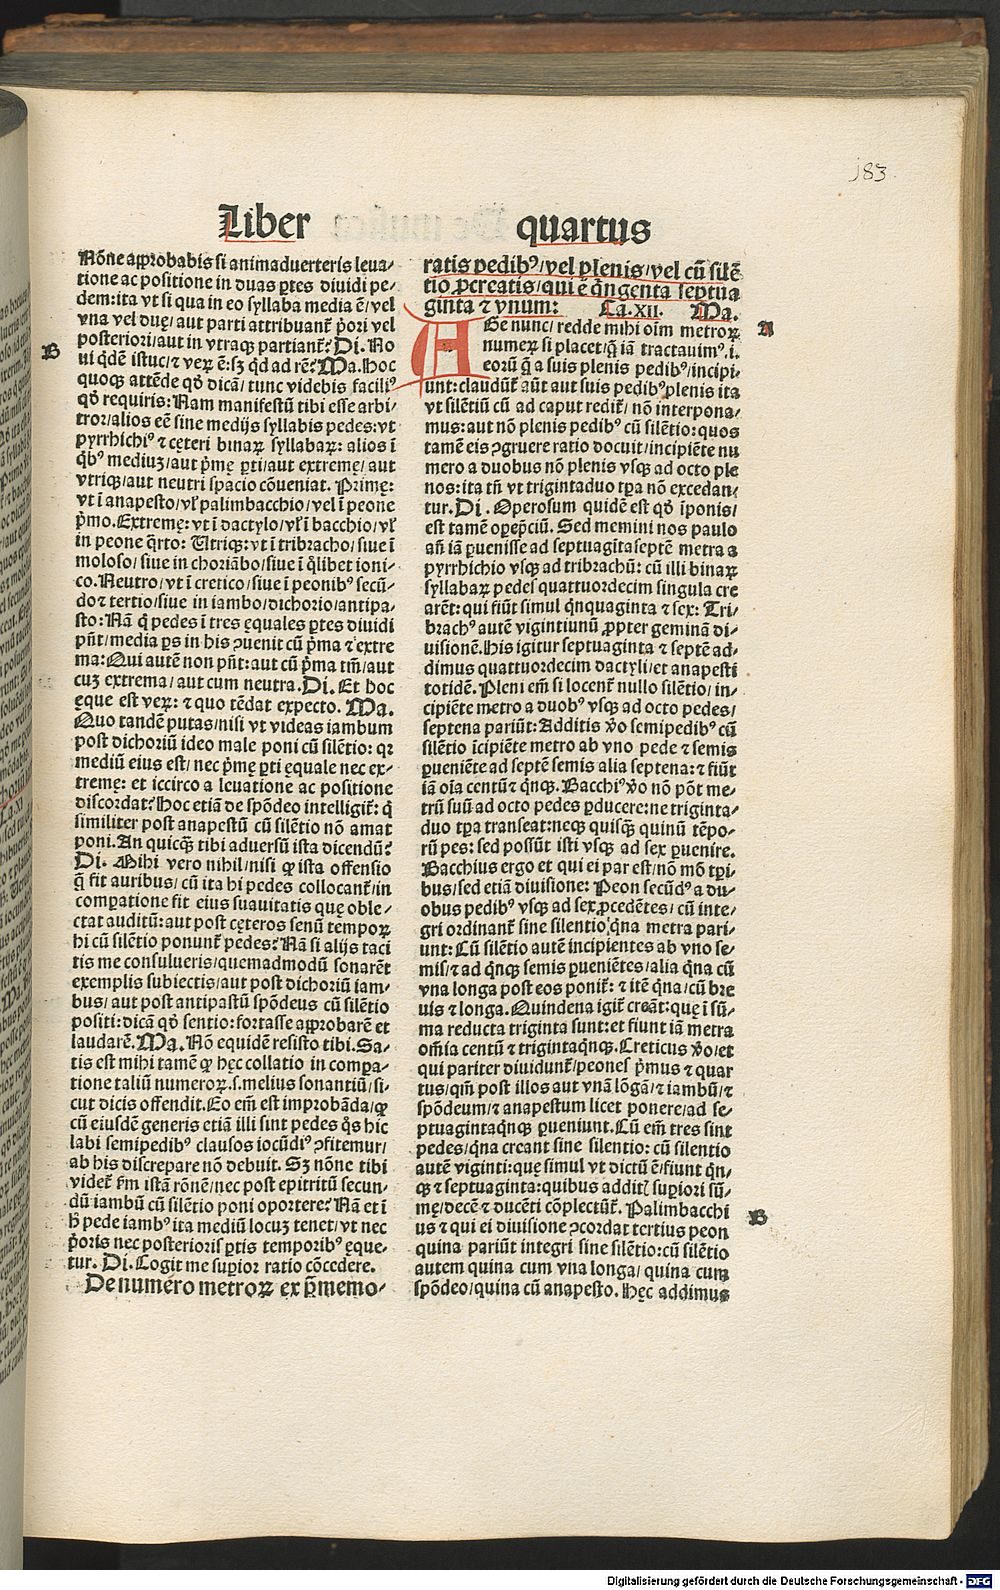 183
Liber quartus
Nōne approbabis si animaduerteris leua/
tione ac positione in duas ꝑtes diuidi pe/
dem: ita vt si qua in eo syllaba media ē/vel
vna vel duę/aut parti attribuantᷣ p̄ori vel
posteriori/aut in vtraqꝫ partiantᷣ? Di. No
B
ui qdē istuc/⁊ verꝝ ē: sꝫ qd ad rē? Ma. Hoc
quoqꝫ attēde qḋ dicā/tunc videbis faciliꝰ
qḋ requiris: Nam manifestū tibi esse arbi/
tror/alios eē sine medijs syllabis pedes: vt
pyrrhichiꝰ ⁊ cęteri binaꝝ syllabaꝝ: alios ī
qbꝰ mediuꝫ/aut p̄mę ꝑti/aut extremę/aut
vtriqꝫ/aut neutri spacio cōueniat. Primę:
vt ī anapesto/vł palimbacchio/vel ī peone
p̄mo. Extremę: vt ī dactylo/vł ī bacchio/vł
in peone q̄rto: Utriqꝫ: vt ī tribracho/siue ī
moloso/siue in choriābo/siue ī qlibet ioni/
co. Neutro/vt ī cretico/siue ī peonibꝰ secū/
do ⁊ tertio/siue in iambo/dichorio/antipa/
sto: Nā q̄ pedes ī tres ęquales ꝑtes diuidi
pn̄t/media ꝑs in his ꝯuenit cū p̄ma ⁊ extre
ma: Qui autē non pn̄t: aut cū p̄ma tm̄/aut
cuꝫ extrema/aut cum neutra. Di. Et hoc
ęque est verꝝ: ⁊ quo tēdat expecto. Ma.
Quo tandē putas/nisi vt videas iambum
post dichoriū ideo male poni cū silētio: qꝛ
mediū eius est/nec p̄mę ꝑti ęquale nec ex/
tremę: et iccirco a leuatione ac positione
discordat? Hoc etiā de spōdeo intelligitᷣ: q̄
similiter post anapestū cū silētio nō amat
poni. An quicq̄ꝫ tibi aduersū ista dicendū?
Di. Mihi vero nihil/nisi ꝙ ista offensio
q̄ fit auribus/cū ita hi pedes collocantᷣ/in
comꝑatione fit eius suauitatis quę oble/
ctat auditū: aut post cęteros senū tempoꝝ
hi cū silētio ponuntᷣ pedes? Nā si alijs taci
tis me consulueris/quemadmodū sonarēt
exemplis subiectis/aut post dichoriū iam/
bus/aut post antipastū spōdeus cū silētio
positi: dicā qḋ sentio: fortasse approbarē et
laudarē. Ma. Nō equidē resisto tibi. Sa/
tis est mihi tamē ꝙ hęc collatio in comꝑa/
tione taliū numeroꝝ .s. melius sonantiū/si/
cut dicis offendit. Eo em̄ est improbāda/ꝙ
cū eiusdē generis etiā illi sint pedes q̄s hic
labi semipedibꝰ clausos iocūdiꝰ ꝯfitemur/
ab his discrepare nō debuit. Sꝫ nōne tibi
videtᷣ ẜm istā rōnē/nec post epitritū secun/
dū iambū cū silētio poni oportere? Nā et ī
h̄ pede iambꝰ ita mediū locuꝫ tenet/vt nec
p̄oris nec posterioris ꝑtis temporibꝰ ęque/
tur. Di. Cogit me suꝑior ratio cōcedere.
De numero metroꝝ ex p̄memo/
ratis pedibꝰ/vel plenis/vel cū silē
tio ꝓcreatis/qui ē qn̄genta septua
ginta ⁊ vnum: Ca. XII. Ma.
A
AGe nunc/redde mihi oīm metroꝝ
numeꝝ si placet/q̄ iā tractauimꝰ .i.
eorū q̄ a suis plenis pedibꝰ/incipi/
unt: claudūtᷣ aūt aut suis pedibꝰ plenis ita
vt silētiū cū ad caput reditᷣ/nō interpona/
mus: aut nō plenis pedibꝰ cū silētio: quos
tamē eis ꝯgruere ratio docuit/incipiēte nu
mero a duobus nō plenis vsqꝫ ad octo ple
nos: ita tn̄ vt trigintaduo tꝑa nō excedan/
tur. Di. Operosum quidē est qḋ īponis/
est tamē opeꝑciū. Sed memini nos paulo
an̄ iā ꝑuenisse ad septuagītaseptē metra a
pyrrhichio vsqꝫ ad tribrachū: cū illi binaꝝ
syllabaꝝ pedes quattuordecim singula cre
arēt: qui fiūt simul qn̄quaginta ⁊ sex: Tri/
brachꝰ autē vigintiunū ꝓpter geminā di/
uisionē. His igitur septuaginta ⁊ septē ad/
dimus quattuordecim dactyli/et anapesti
totidē. Pleni em̄ si locentᷣ nullo silētio/in/
cipiēte metro a duobꝰ vsqꝫ ad octo pedes/
septena pariūt: Additis v̄o semipedibꝰ cū
silētio īcipiēte metro ab vno pede ⁊ semis
ꝑueniēte ad septē semis alia septena: ⁊ fiūt
iā oīa centū ⁊ qn̄qꝫ. Bacchiꝰ v̄o nō pōt me/
trū suū ad octo pedes ꝑducere: ne triginta/
duo tꝑa transeat: neqꝫ quisq̄ꝫ quinū tēpo/
rū pes: sed possūt isti vsqꝫ ad sex ꝑuenire.
Bacchius ergo et qui ei par est/nō mō tꝑi/
bus/sed etiā diuisione: Peon secūdꝰ a du/
obus pedibꝰ vsqꝫ ad sex ꝓcedētes/cū inte/
gri ordinantᷣ sine silentio qna metra pari/
unt: Cū silētio autē incipientes ab vno se/
mis/⁊ ad qn̄qꝫ semis ꝑueniētes/alia qna cū
vna longa post eos ponitᷣ: ⁊ itē qna/cū bre
uis ⁊ longa. Quindena igitᷣ creāt: que ī sū/
ma reducta triginta sunt: et fiunt iā metra
om̄ia centū ⁊ trigintaqn̄qꝫ. Creticus v̄o/et
qui pariter diuiduntᷣ/peones p̄mus ⁊ quar
tus/qm̄ post illos aut vnā lōgā/⁊ iambū/⁊
spōdeum/⁊ anapestum licet ponere/ad se/
ptuagintaqn̄qꝫ ꝑueniunt. Cū em̄ tres sint
pedes/qna creant sine silentio: cū silentio
autē viginti: quę simul vt dictū ē/fiunt qn̄/
qꝫ ⁊ septuaginta: quibus additꝭ suꝑiori sū/
B
mę/decē ⁊ ducēti cōplectūtᷣ. Palimbacchi
us ⁊ qui ei diuisione ꝯcordat tertius peon
quina pariūt integri sine silētio: cū silētio
autem quina cum vna longa/quina cum
spōdeo/quina cū anapesto. Hęc addimus
Digitalisierung gefördert durch die Deutsche Forschungsgemeinschaft - DFG